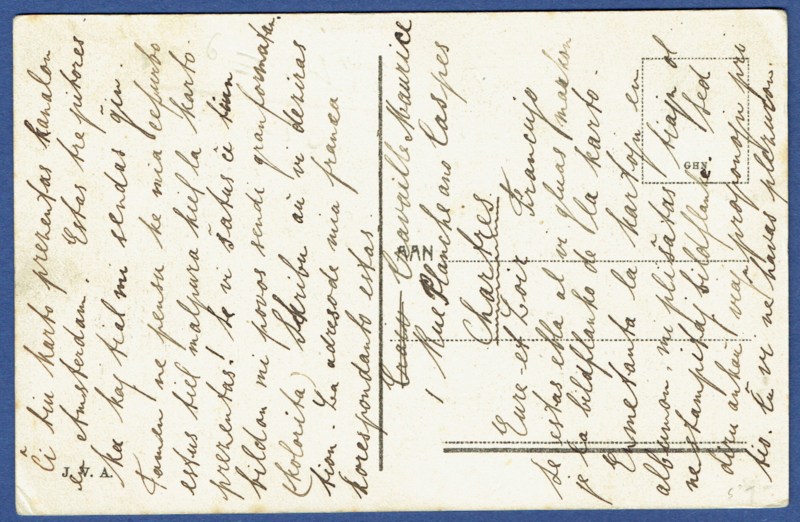 Ĉi tiu karto prezentas kanalon
en Amsterdam. Estas tre pitores
ka kaj tial mi sendas ĝin.
Tamen ne pensu ke mia cepurbo
estus tiel malpura kiel la karto
prezentas! Se vi ŝatus ĉi tiun
bildon mi povos sendi granformatan
(kolorita) Skribu ĉu vi deziras
tion. La adreso de mia franca
korespondanto estas
Cavaillé Maurice
1 Rue Planche aux Carpes
Chartres
Eure et Loir Francujo
Se estas eble al vi gluas markon
je la bildflanko de la karto.
Enmetante la kartojn en
albumon, mi pliŝatas tiajn ol
nestampitaj bildflanke. Sed
vian proponojn pri
tio. Ĉu vi ne havas
AAN
GEN
J. V. A.